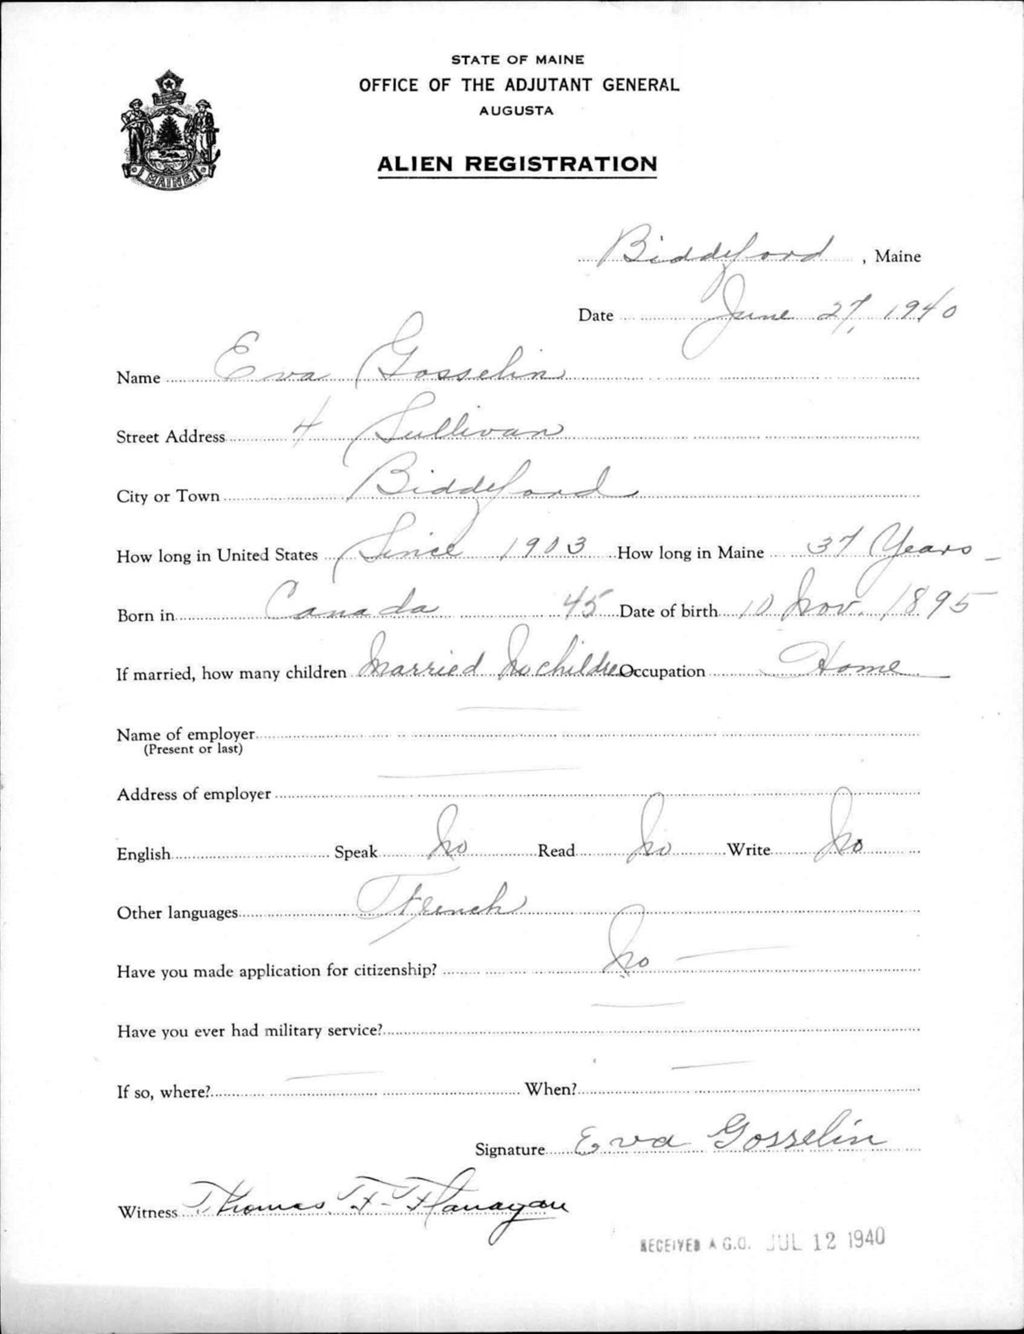 STATE OF MAINE
OFFICE OF THE ADJUTANT GENERAL
AUGUSTA
ALIEN REGISTRATION
MAINE
Biddeford, Maine
Date June 27, 1940
Name Eva Gosselin
Street Address 4 Sullivan
City or Town Biddeford
How long in United States Since 1903 How long in Maine 37 Years
Born in Canada 45 Date of birth 10 Nov. 1895
If married, how many children Married No children Occupation Home
Name of employer
(Present or last)
Address of employer
English Speak No Read No Write No
Other languages French
Have you made application for citizenship? No
Have you ever had military service?
If so, where? When?
Signature Eva Gosselin
Witness Thomas F. Flanagan
RECEIVED A.G.O. JUL 12 1940